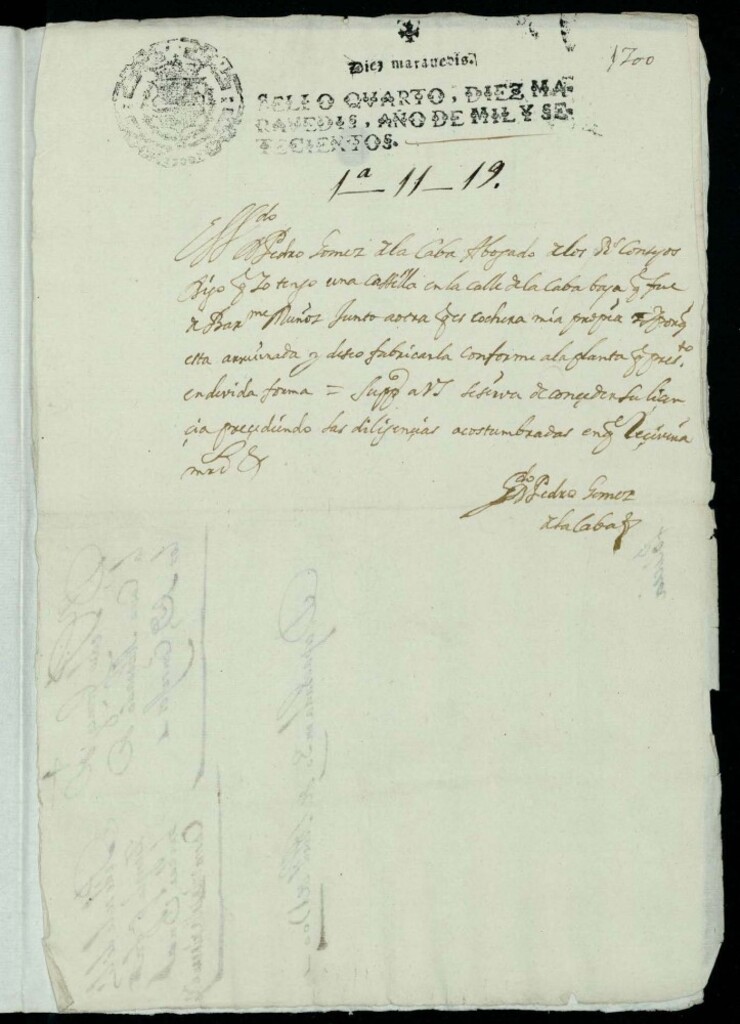 1700
Diez maravedis.
SELLO QVARTO, DIEZ MA-
RAVEDIS, AÑO DE MIL Y SE-
TECIENTOS.
1ª—11—19.
Pedro Gomez de la Caba Abogado de los Rs Consejos
Digo q Yo tengo una cassilla en la calle de la Caba baja q fue
de Barme Muñoz Junto a otra q es cochera mia propia y porq
esta arruinada y deseo fabricarla conforme a la planta q presto
en devida forma = Suppco a VS se sirva de conçeder su liçen
çia preçediendo las diligençias acostumbradas en q Reçivira
mrd
Ldo D Pedro Gomez
de la Caba